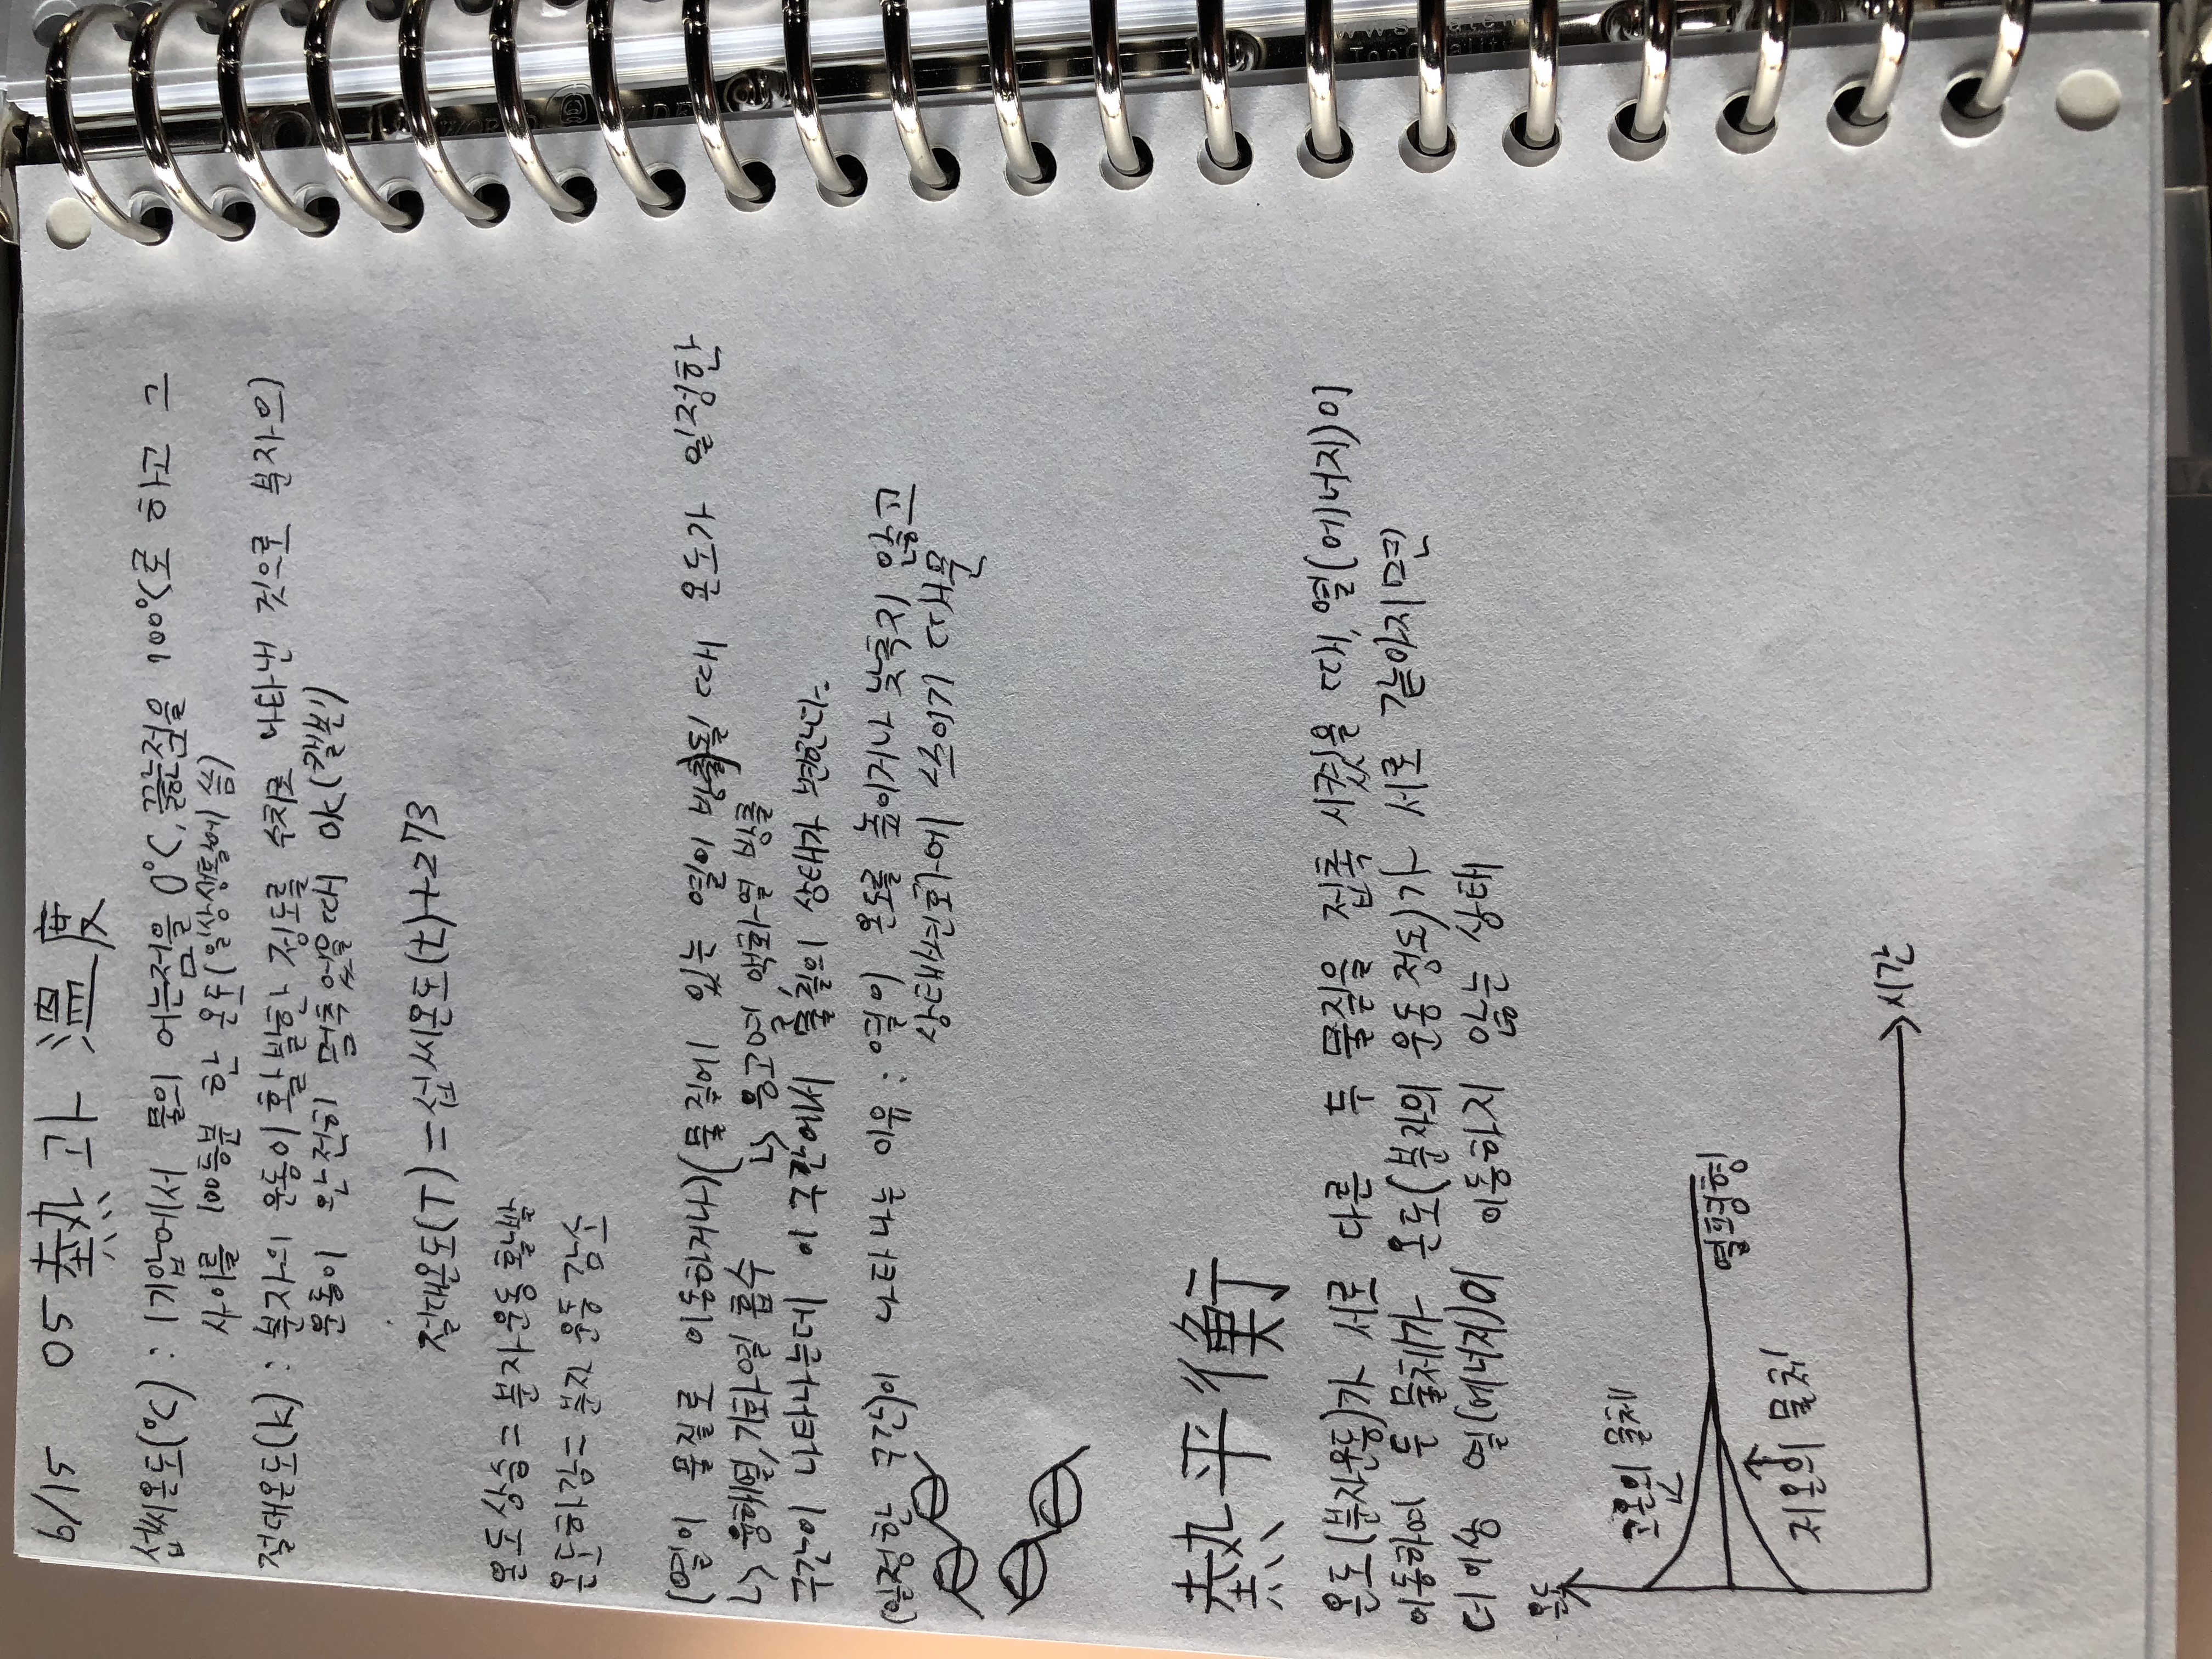 6/15 05 熱과 溫度
섭씨온도(℃) : 1기압에서 물의 어는점을 0℃, 끓는점을 100℃로 하고 그
사이를 100등분 한 온도(일상생활에 씀)
절대온도(k) : 분자의 운동이 활발한 정도를 수치로 나타낸 것으로 분자의
운동이 완전히 멈추었을때 0k(켈빈)
절대온도(T) = 섭씨온도(t)+273
온도상승 = 분자운동 활발
온도하강 = 분자 운동 감소
(열이 물질로 이동하거나)(물질에 있는 열이 방출될 때 온도가 일정한
↳ 융해열, 기화열 흡수 ↳ 응고열, 액화열 방출
구간이 나타나는데 이 구간에서 물질의 상태가 변한다.
(일정한 구간)이 나타나는 이유 : 열이 온도를 높이거나 낮추지 않고
상태변화에 쓰이기 때문
熱平衡
온도(분자운동)가 서로 다른 두 물질을 접촉 시켰을 때, 열(에너지)이
이동하여 두 물체가 온도(분자의 운동 정도)가 서로 같아지면
더 이상 열(에너지)이 이동하지 않는 상태
온도
고온의 물체
열평형
저온의 물체
시간